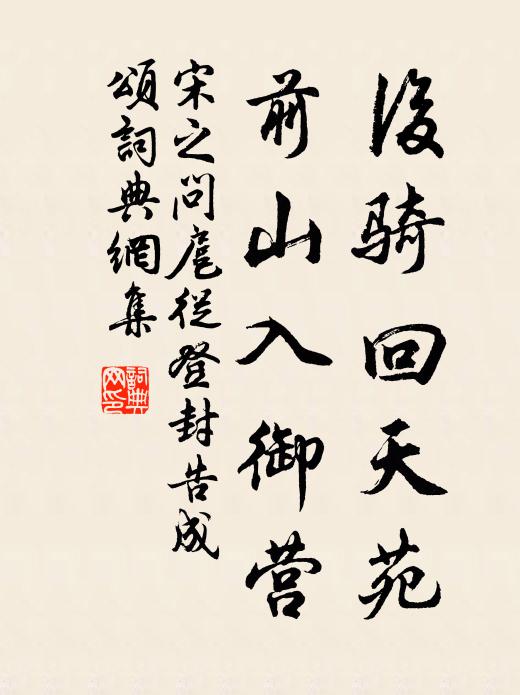 後骑回天苑
前山入御营
宋之问扈從登封告成
頌詞典網集
詞典网印